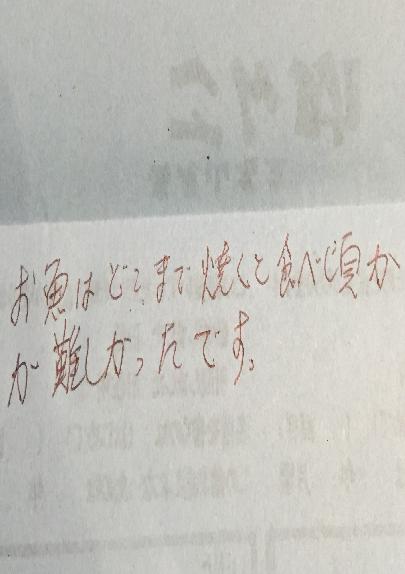 お魚はどこまで焼くと食べご頃か
が難しかったです。